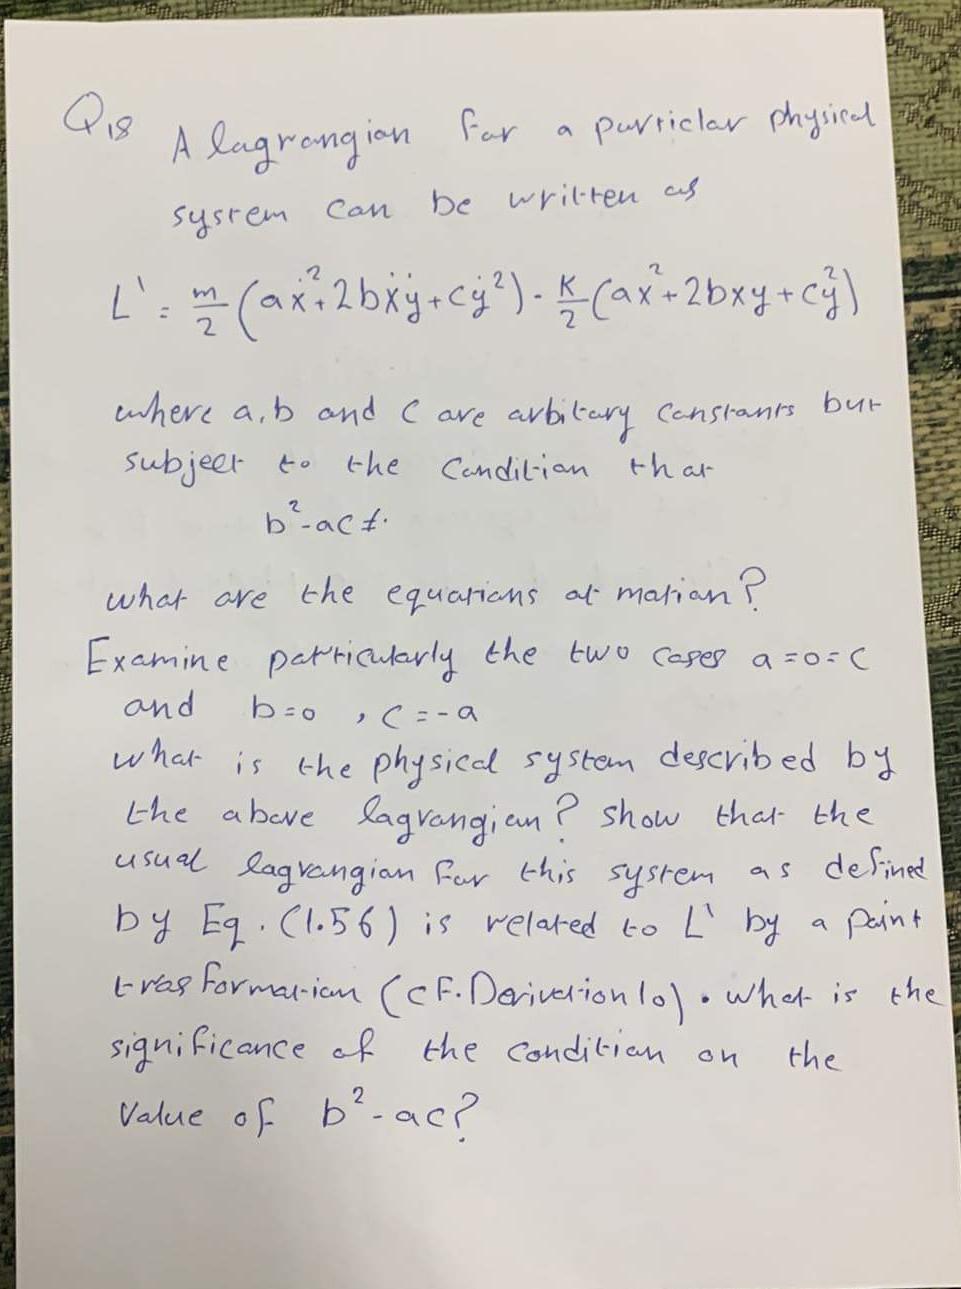 Q18 A lagrangian for a particlar physical
system can be written as
L' = m/2 (aẋ² + 2bẋẏ + cẏ²) - K/2 (ax² + 2bxy + cy²)
where a, b and c are arbitary constants but
subject to the condition that
b² - ac ≠.
what are the equations of motion?
Examine particularly the two cases a = 0 = c
and b = 0 , c = -a
what is the physical system described by
the above lagrangian? show that the
usual lagrangian for this system as defined
by Eq. (1.56) is related to L' by a point
trasformation (cF. Derivation 10). what is the
significance of the condition on the
Value of b² - ac?